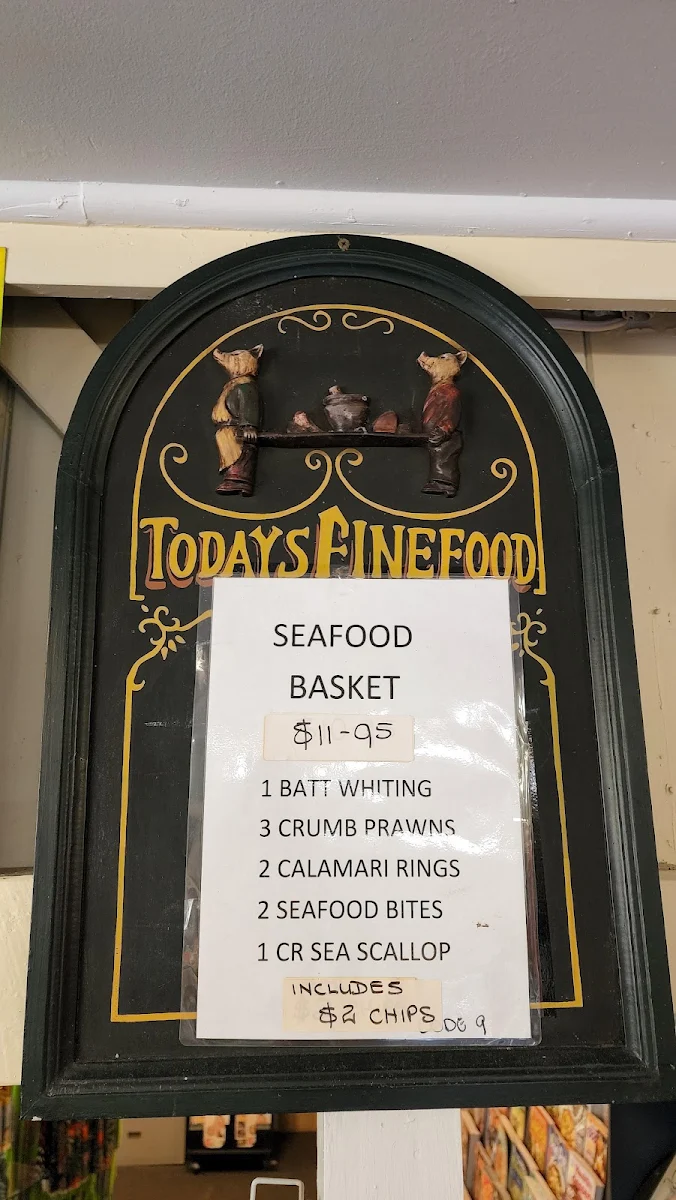 TODAYS FINE FOOD
SEAFOOD
BASKET
$11-95
1 BATT WHITING
3 CRUMB PRAWNS
2 CALAMARI RINGS
2 SEAFOOD BITES
1 CR SEA SCALLOP
INCLUDES
$2 CHIPS 9